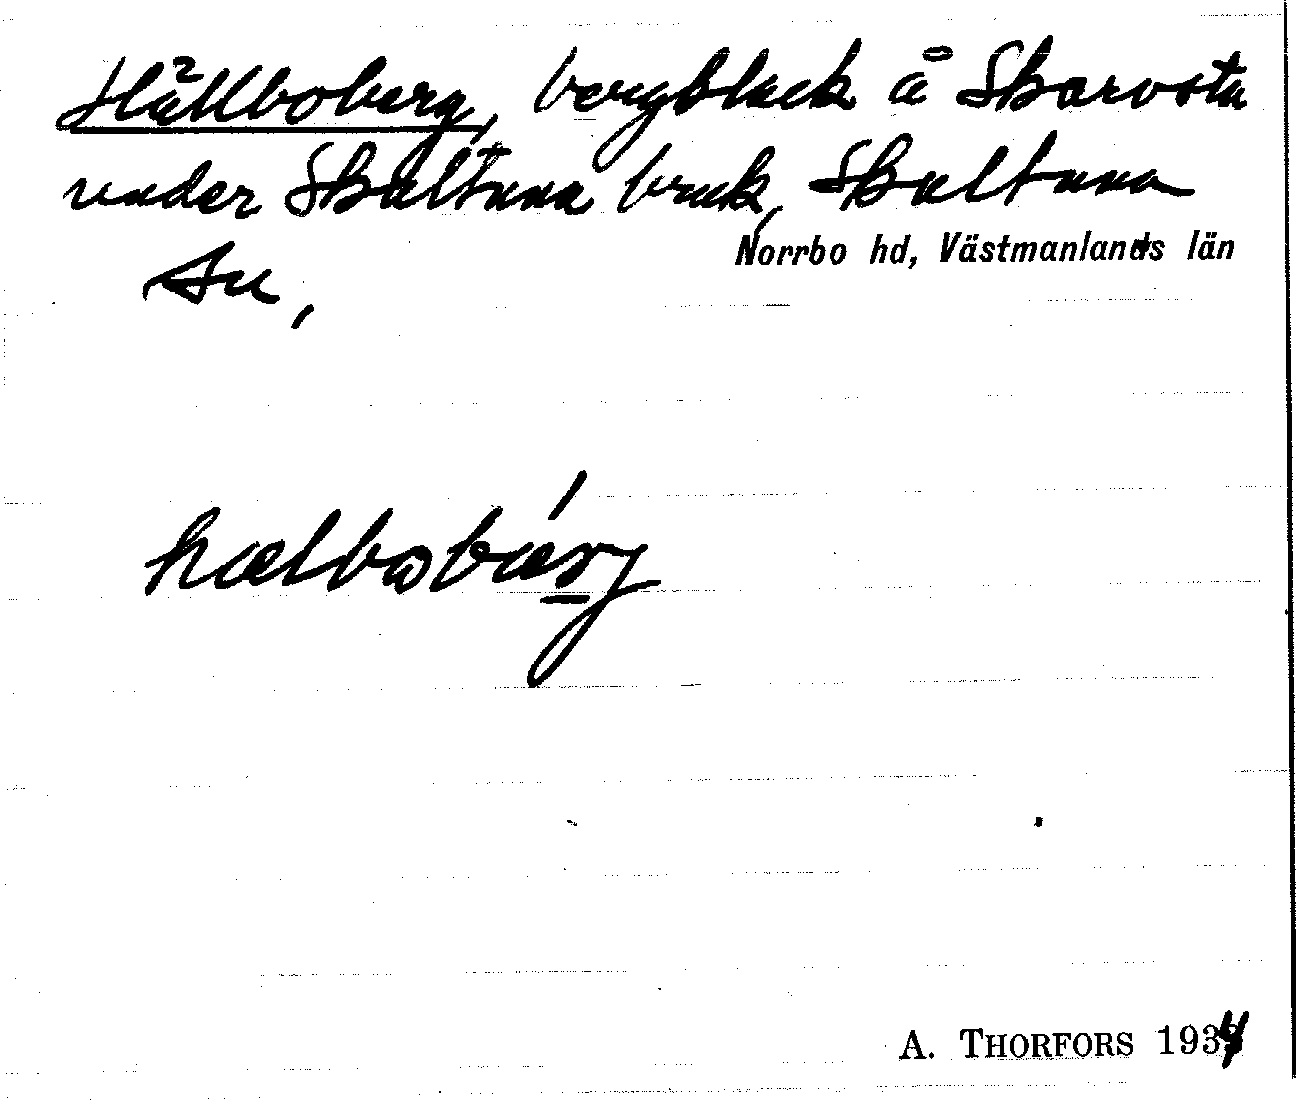 Hällboberg, bergbluck å Skarvsta
under Skultuna bruk, Skultuna
Norrbo hd, Västmanlands län
sn,
hælbobærj
A. THORFORS 1934